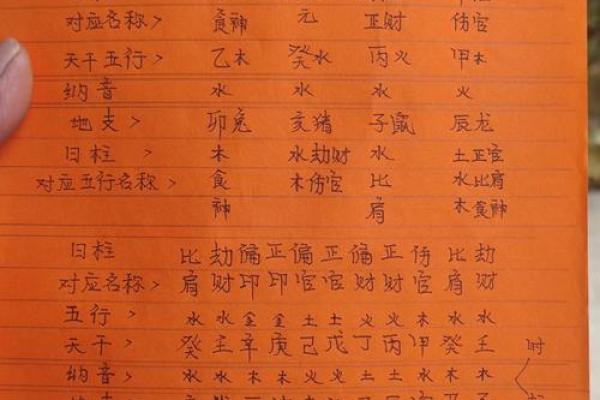 对应名称> 食神 元 正财 伤官
天干五行> 乙木 癸水 丙火 甲木
纳音 水 水 水 火
地支> 卯兔 亥猪 子鼠 辰龙
日柱> 木 水劫财 水 土正官
对应五行名称> 食神 木伤官 比肩 水比肩
木食神
日柱 比 劫 偏 正 偏 正 偏 正 伤 比 劫
对应名称> 肩 财 印 印 官 官 财 财 官 肩 财
五行> 水 水 金 金 土 土 火 火 木 水 水
天干> 癸 壬 辛 庚 己 戊 丁 丙 甲 癸 壬 时
纳音> 水 水 木 木 火 火 土 土 水 木 木